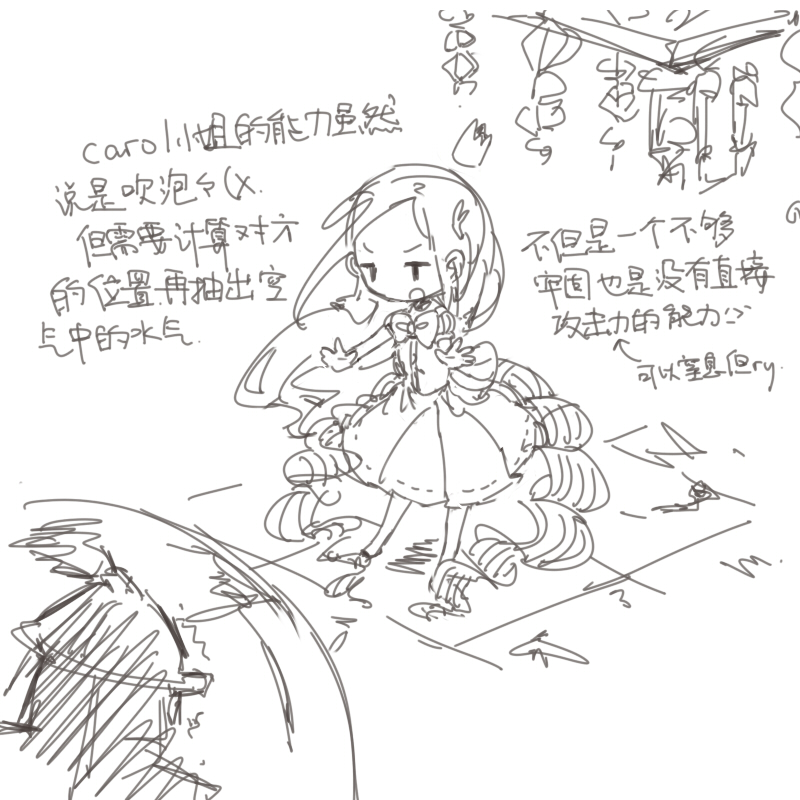 carol小姐的能力虽然
说是吹泡泡(x.
但需要计算对方
的位置再抽出空
气中的水气.
不但是一个不够
牢固也是没有直接
攻击力的能力
可以窒息但ry.